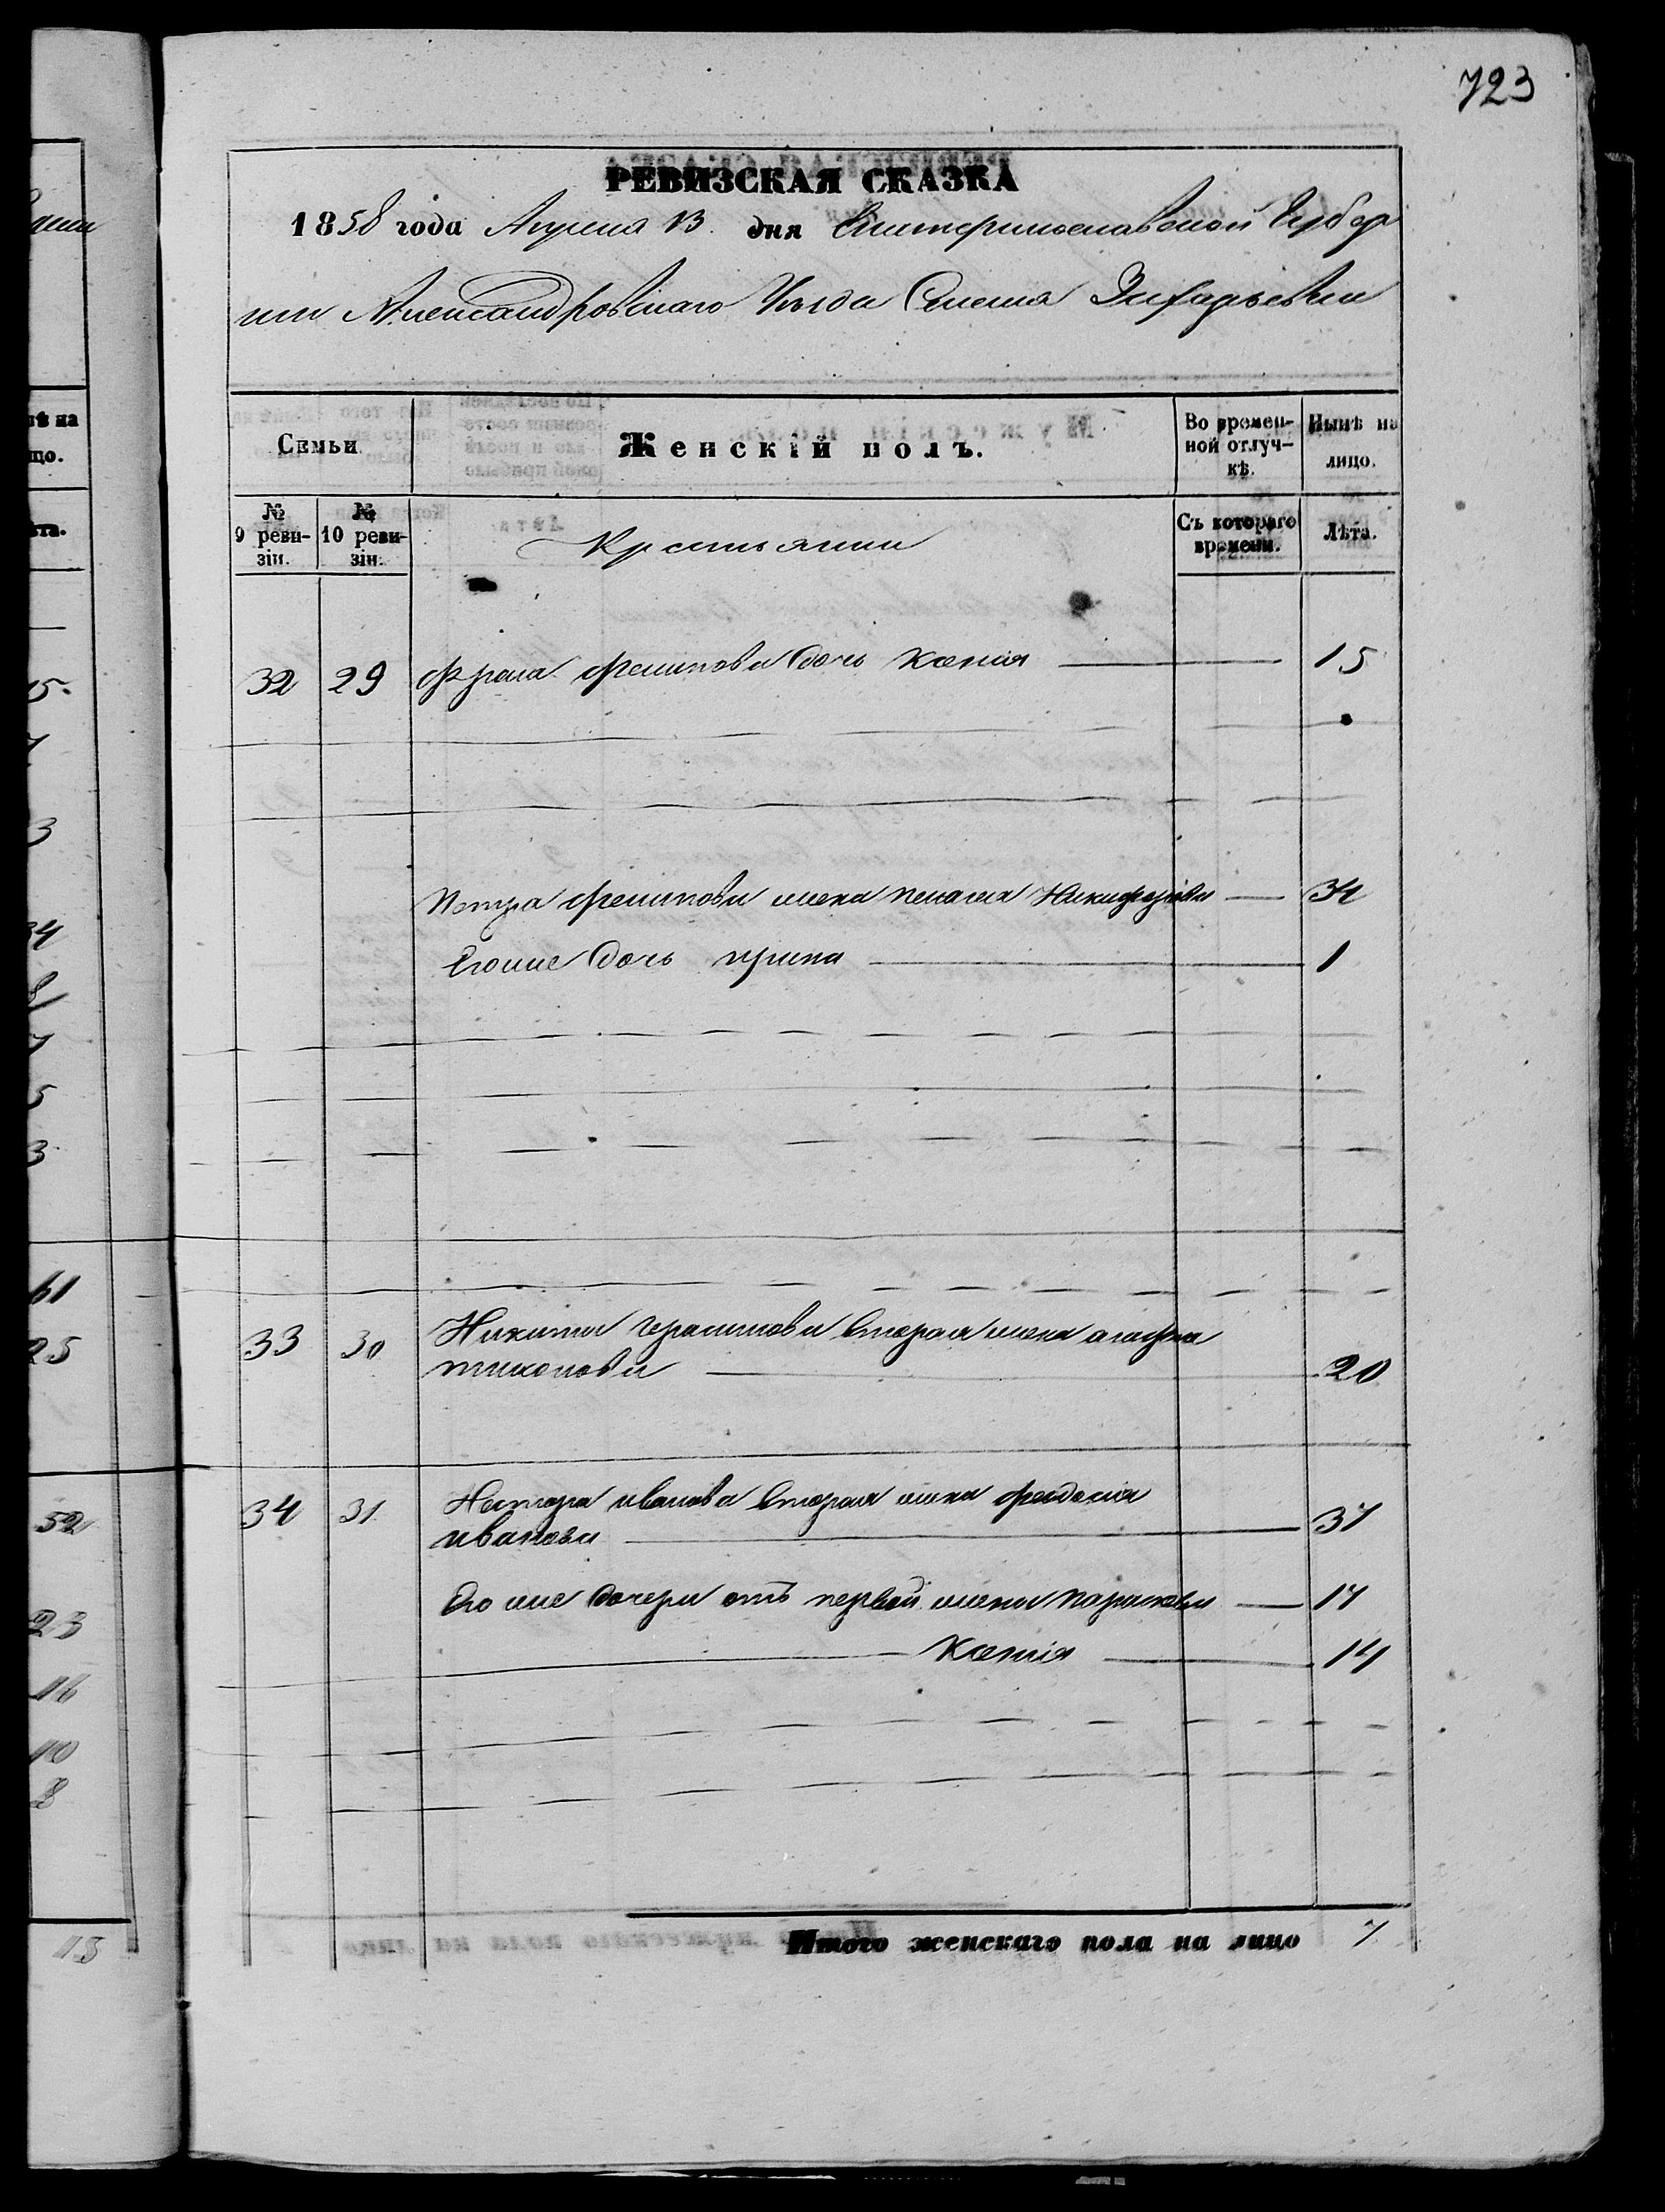 723
РЕВИЗСКАЯ СКАЗКА
1858 года Апреля 13 дня Екатеринославской Губер
нии Александровскаго Уезда Села
Семьи
Женскій полъ.
Во времен-
ной отлуч-
кѣ.
Нынѣ на
лицо.
№
9 реви-
зіи.
№
10 реви-
зіи.
Крестьяни
Съ котораго
времени.
Лѣта.
32 29 Фрола Филипова дочь Ксенія 15
Петра Филипова жена Пелагея Никифорова 34
Его же дочь Ирина 1
33 30 Никиты Герасимова вторая жена агафия
тихонова 20
34 31 Нестора иванова вторая жена феодосия
иванова 37
Его же дочери отъ первой жены Парасковия 17
Ксенія 14
Итого женскаго пола на лицо 7
ѣ на
цо.
ѣта.
15
7
3
34
8
7
5
3
61
25
52
23
16
10
8
13